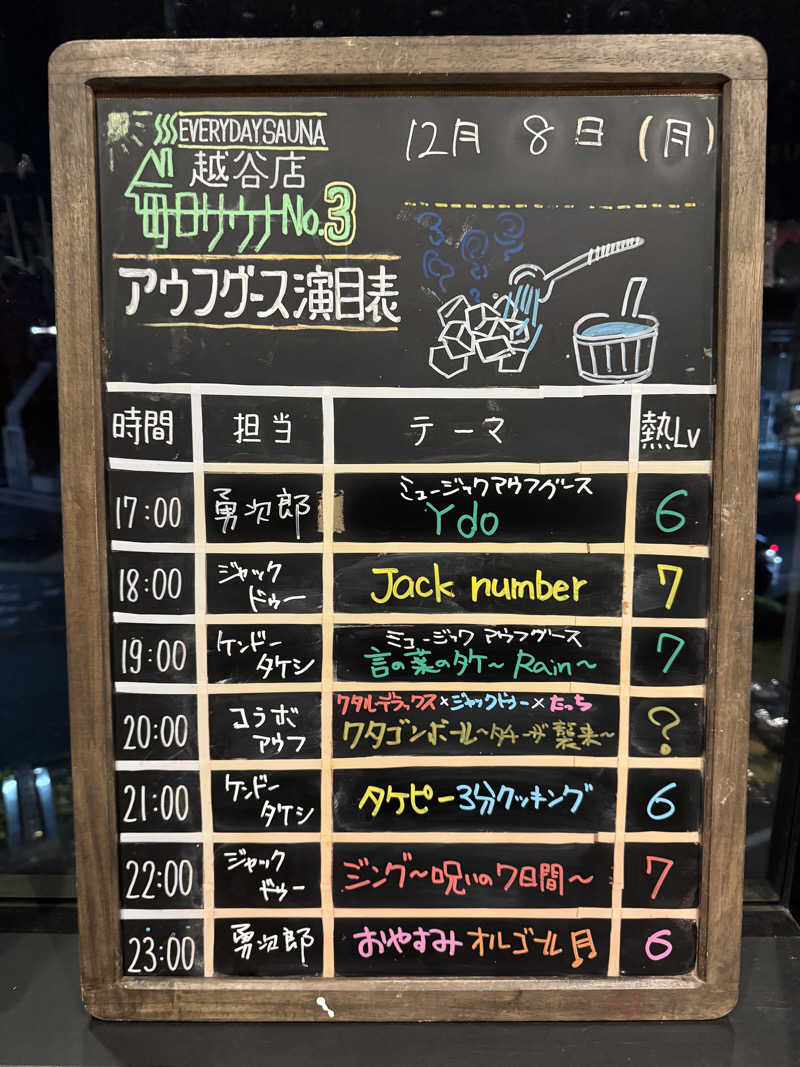 EVERYDAY SAUNA
越谷店
毎日サウナNo.3
12月 8日 (月)
アウフグース演目表
時間 担当 テーマ 熱Lv
17:00 勇次郎 ミュージックアウフグース
Ydo 6
18:00 ジャック
ドゥー Jack number 7
19:00 ケンドー
タケシ ミュージック アウフグース
言の葉のタケ〜Rain〜 7
20:00 コラボ
アウフ ワタルデラックス×ジャックドゥー×たっち
ワタゴンボール〜タチーザ襲来〜 ?
21:00 ケンドー
タケシ タケピー3分クッキング 6
22:00 ジャック
ドゥー ジング〜呪いの7日間〜 7
23:00 勇次郎 おやすみオルゴール♬ 6